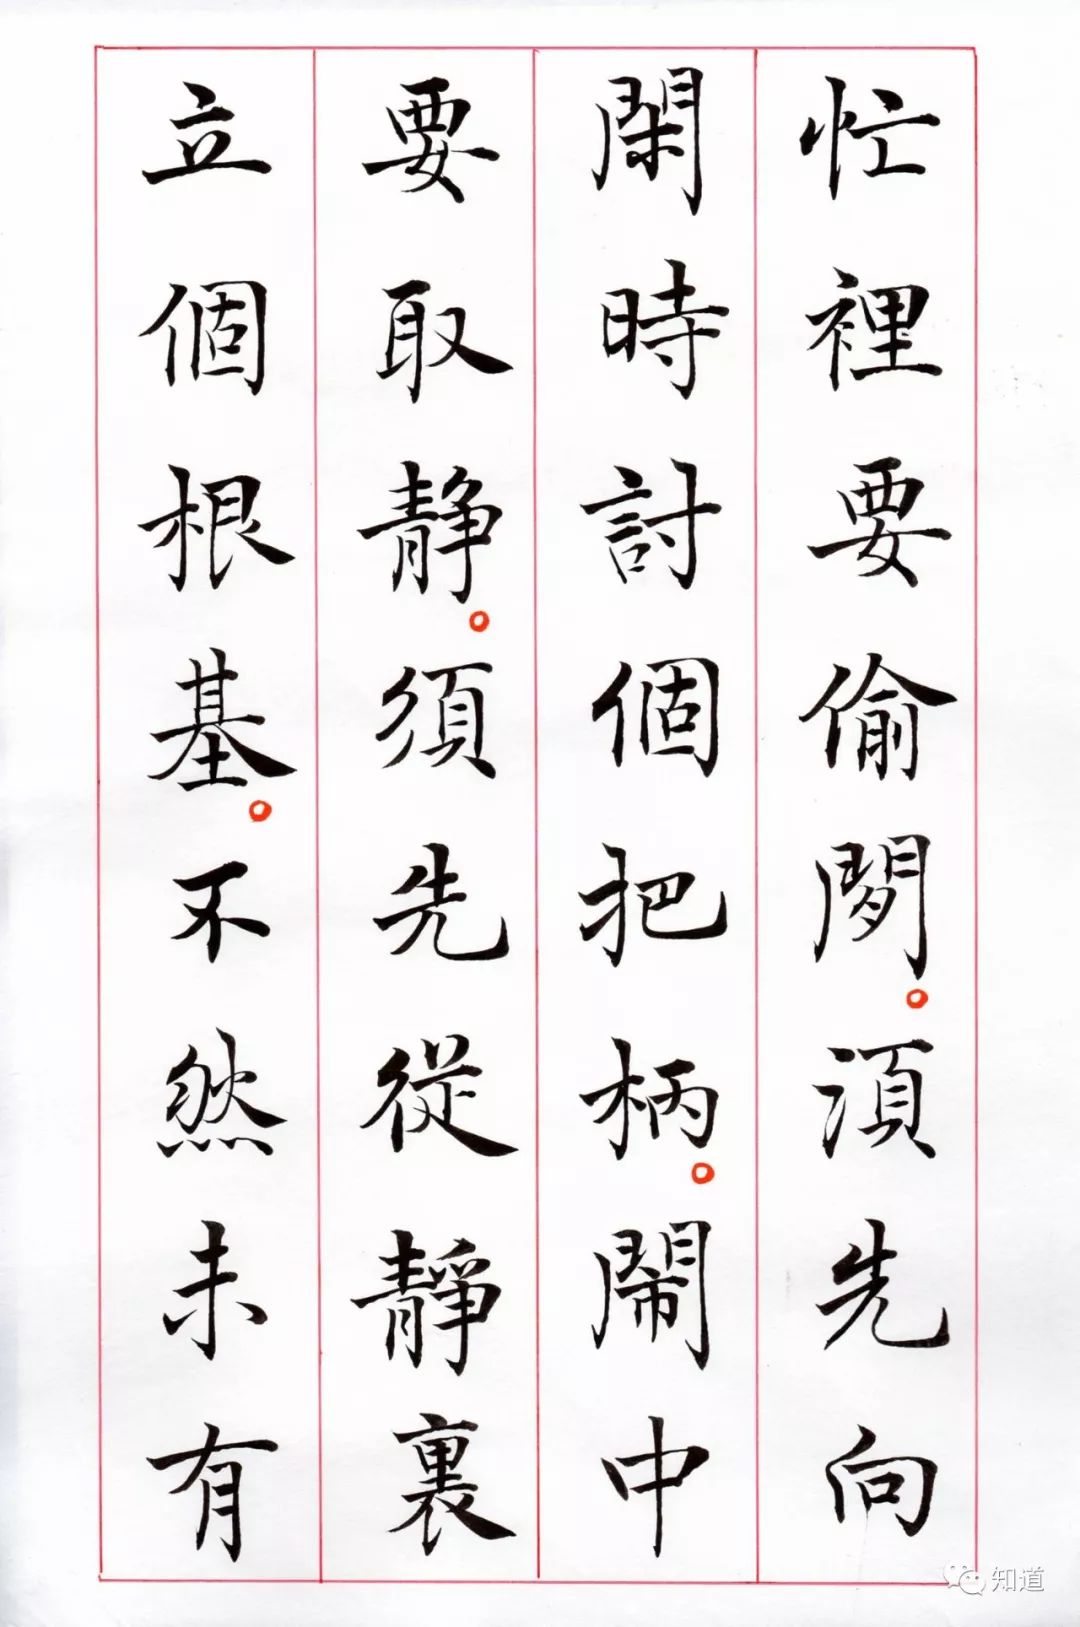 忙裡要偷閒。湏先向
閑時討個把柄。閙中
要取静。須先從靜裏
立個根基。不然未有
知道